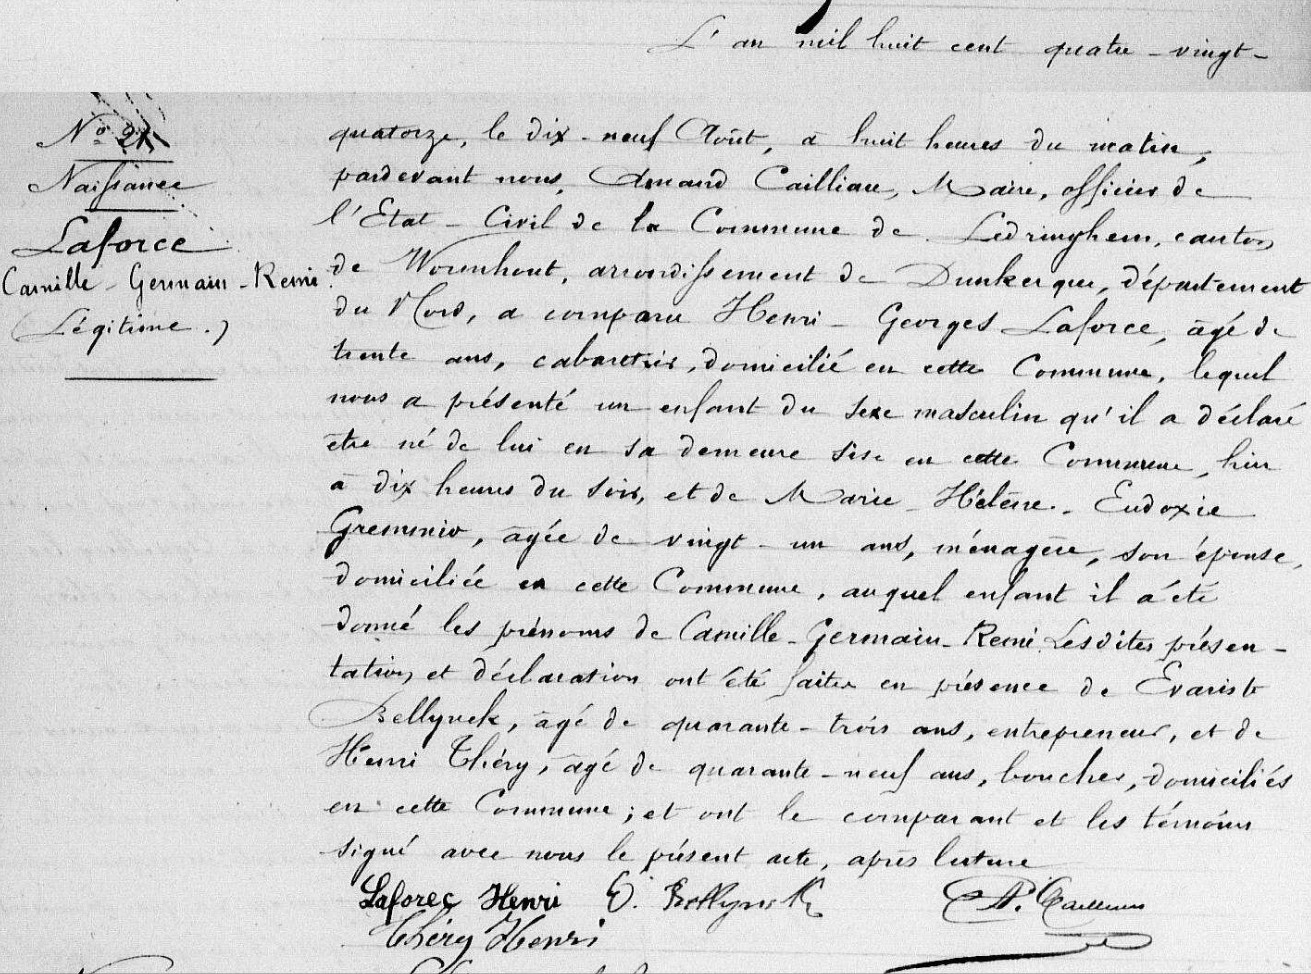 L'an mil huit cent quatre-vingt-
N° 21
Naissance
Laforce
Camille-Germain-Remi
(Légitime.)
quatorze, le dix-neuf Août, a huit heures du matin,
pardevant nous, Amand Cailliau, Maire, officier de
l'Etat-Civil de la Commune de Ledringhem, canton
de Wormhout, arrondissement de Dunkerque, département
du Nord, a comparu Henri-Georges Laforce, âgé de
trente ans, cabaretier, domicilié en cette Commune, lequel
nous a présenté un enfant du sexe masculin qu'il a déclaré
être né de lui en sa demeure sise en cette Commune, hier
à dix heures du soir, et de Marie-Hélène-Eudoxie
Gremmio, âgée de vingt-un ans, ménagère, son épouse,
domiciliée en cette Commune, auquel enfant il a été
donné les prénoms de Camille-Germain-Remi. Lesdites présen-
tation et déclaration ont été faites en présence de Evariste
Bellynck, âgé de quarante-trois ans, entrepreneur, et de
Henri Théry, âgé de quarante-neuf ans, boucher, domiciliés
en cette Commune; et ont le comparant et les témoins
signé avec nous le présent acte, après lecture
Laforce Henri E. Bellynck A. Cailliau
Théry Henri